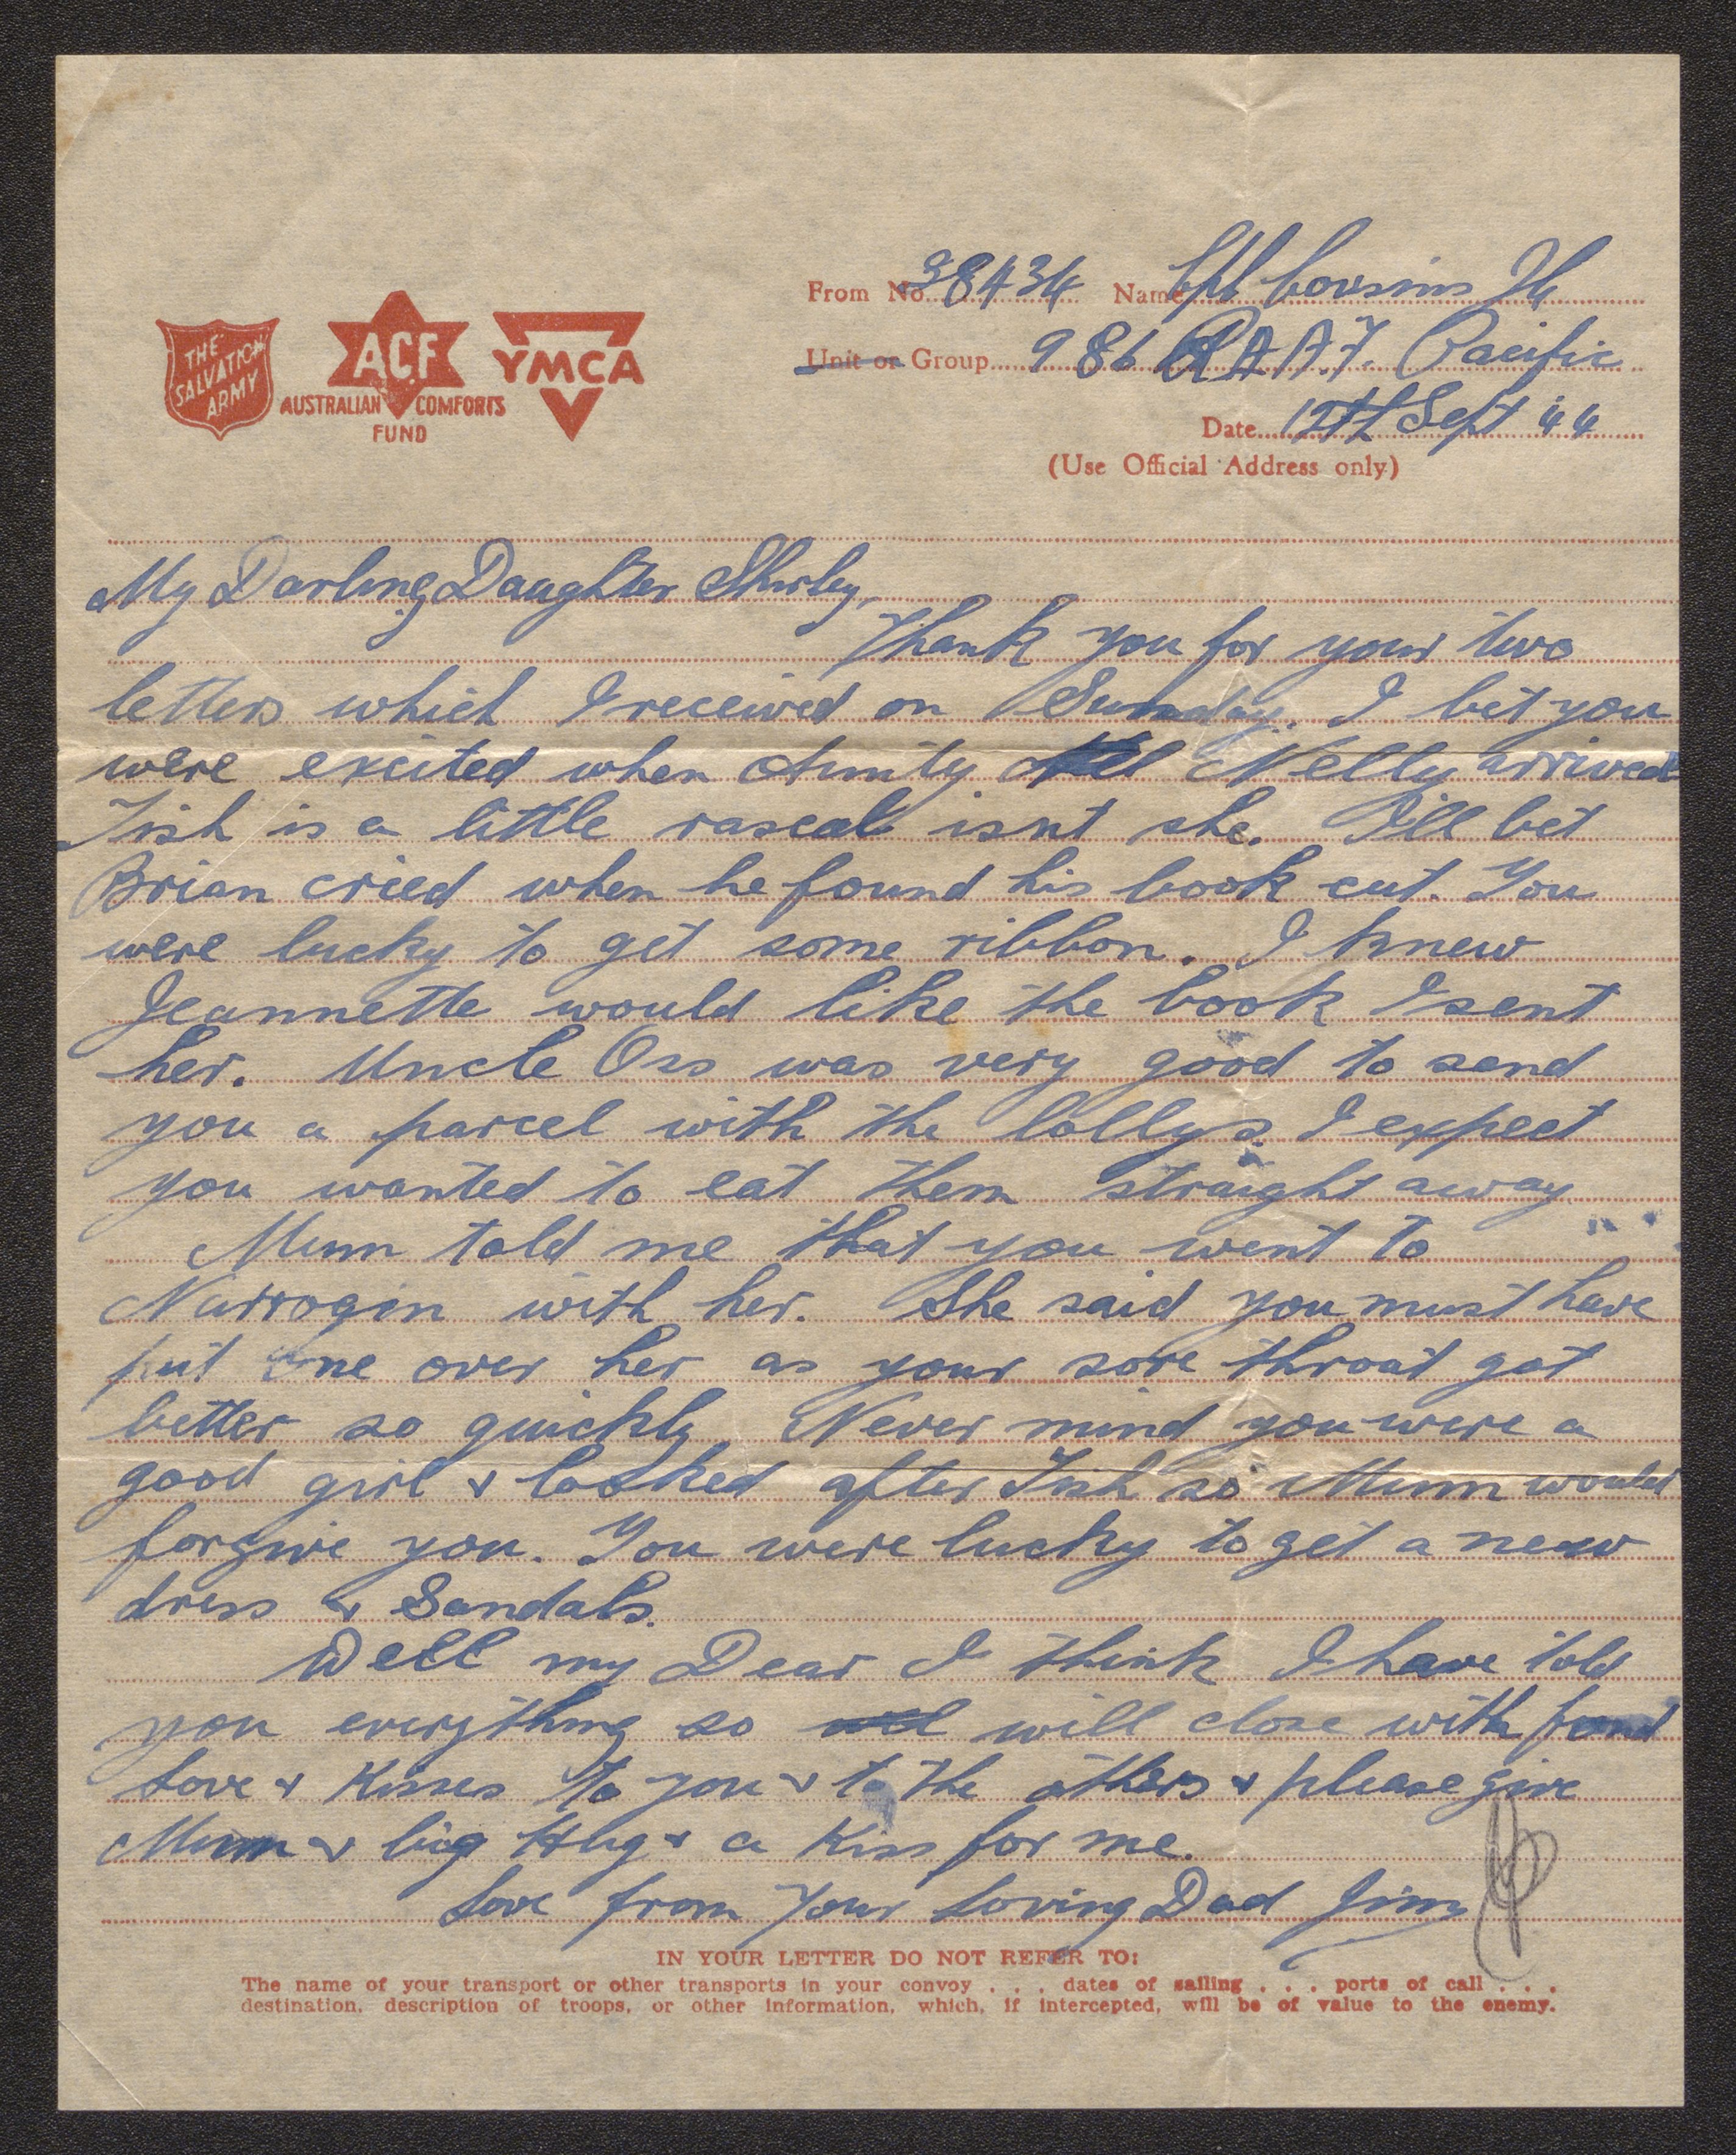 THE SALVATION ARMY
ACF
AUSTRALIAN COMFORTS FUND
YMCA
From No. 38434 Name Cpl Cousins
Unit or Group 986 RAAF. Pacific
Date 12th Sept 44
(Use Official Address only)
My Darling Daughter Shirley,
Thank you for your two
letters which I received on Sunday. I bet you
were excited when Aunty Nelly arrived
Tish is a little rascal isnt she. I'll bet
Brian cried when he found his book cut. You
were lucky to get some ribbon. I knew
Jeannette would like the book I sent
her. Uncle Oss was very good to send
you a parcel with the lollys. I expect
you wanted to eat them straight away
Mum told me that you went to
Narrogin with her. She said you must have
put one over her as your sore throat got
better so quickly Never mind you were a
good girl & looked after Tish so Mum would
forgive you. You were lucky to get a new
dress & Sandals.
Well my Dear I think I have told
you everything so will close with fond
Love & Kisses to you & to the others & please give
Mum & big Hug & a Kiss for me.
Love from Your Loving Dad Jim
IN YOUR LETTER DO NOT REFER TO:
The name of your transport or other transports in your convoy . . . dates of sailing . . . ports of call . . .
destination, description of troops, or other information, which, if intercepted, will be of value to the enemy.